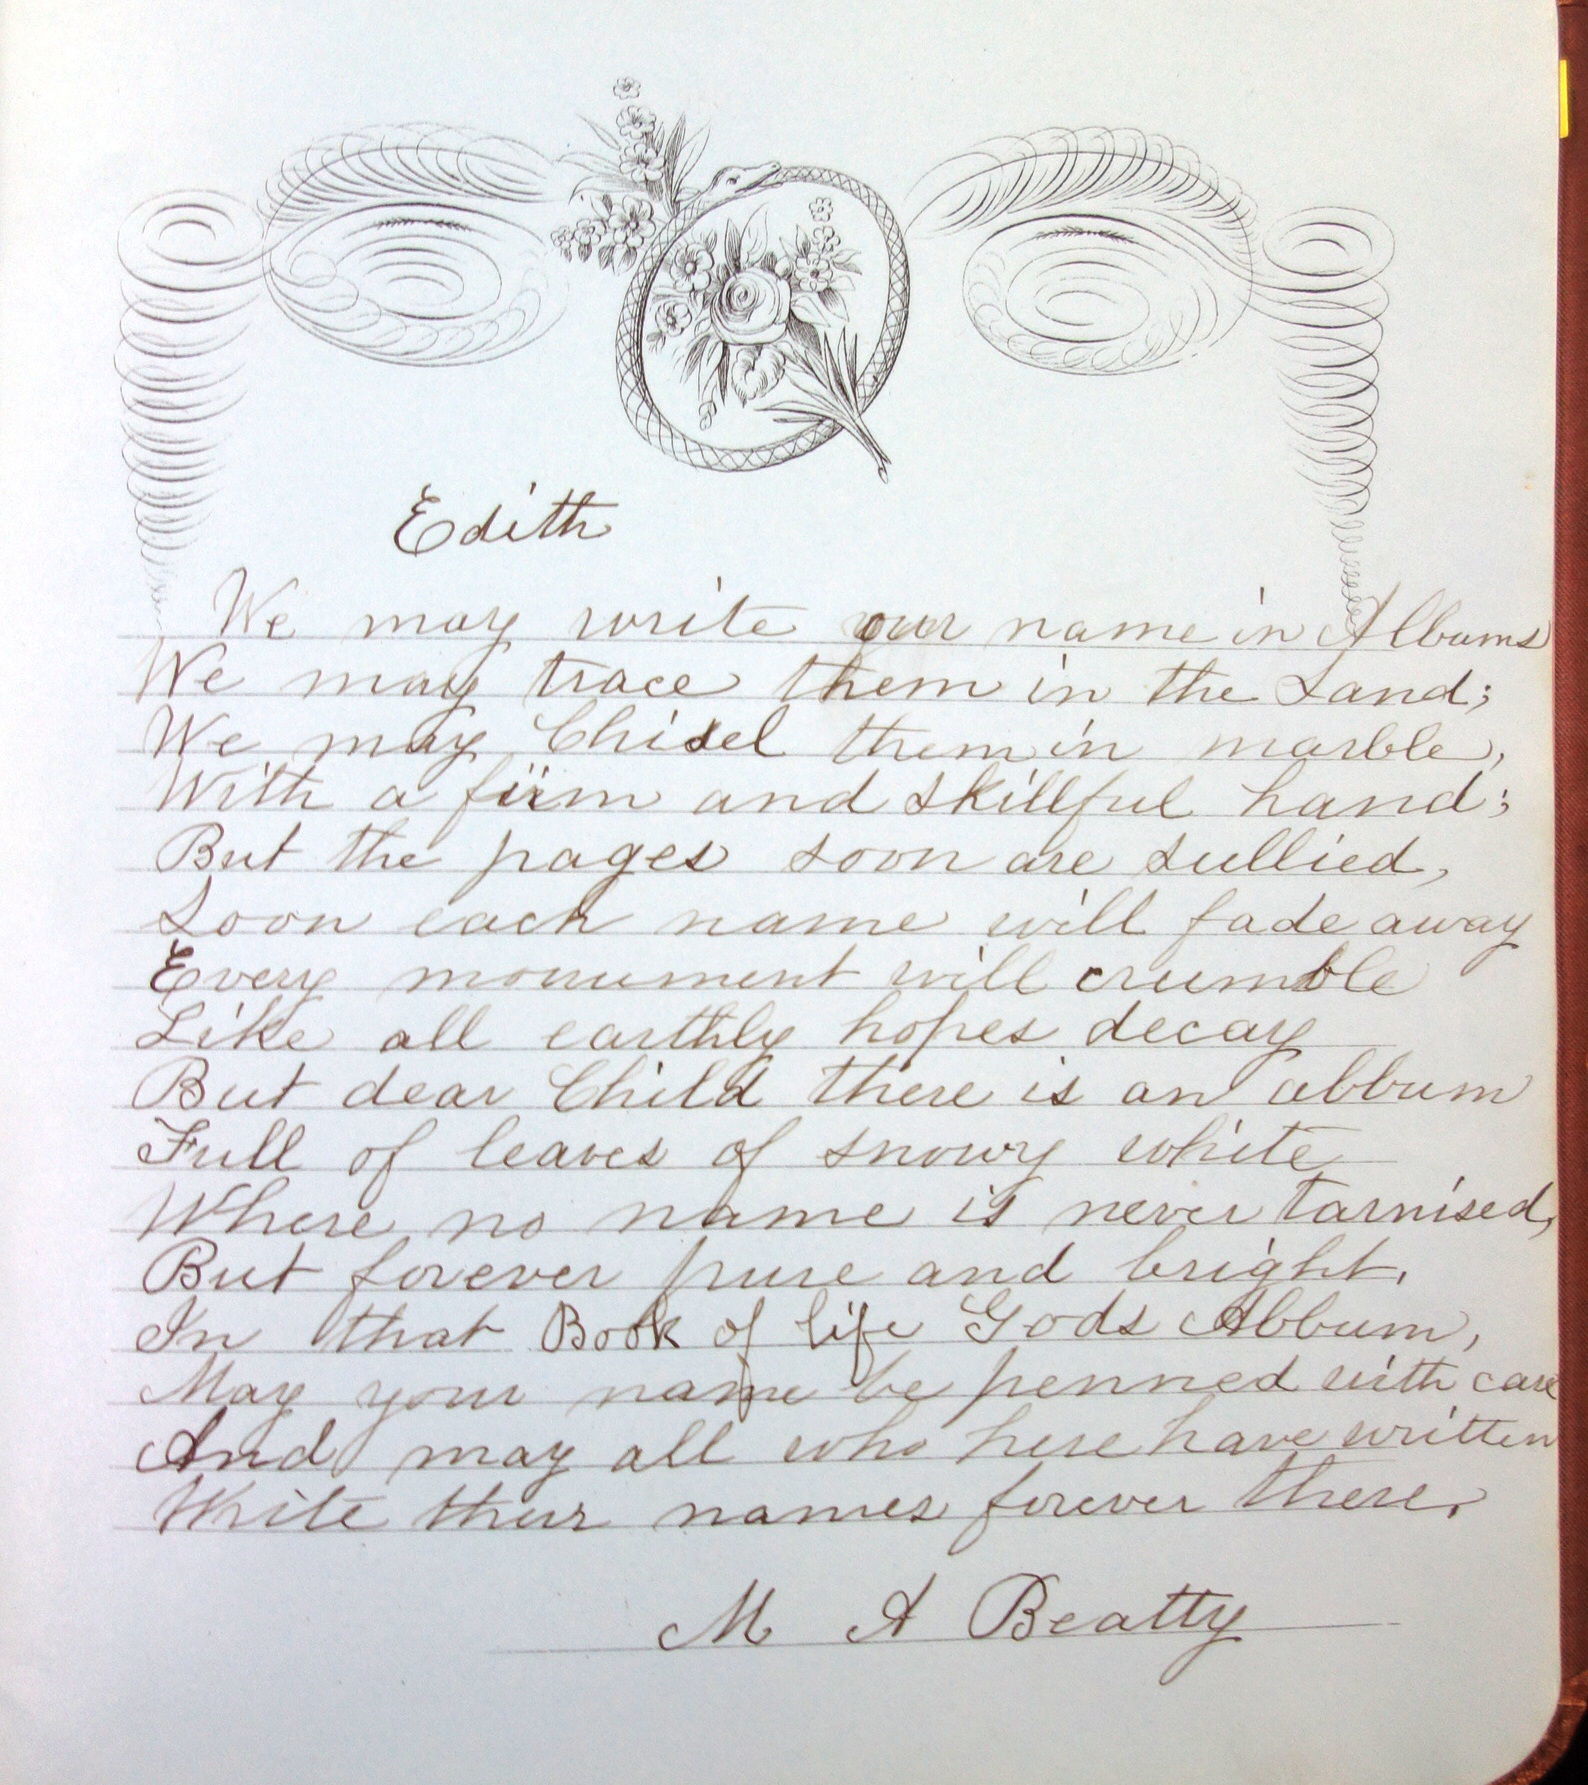 Edith
We may write our name in Albums
We may trace them in the Sand;
We may Chisel them in marble,
With a firm and skillful hand;
But the pages soon are sullied,
Soon each name will fade away
Every monument will crumble
Like all earthly hopes decay
But dear Child there is an album
Full of leaves of snowy white
Where no name is never tarnised,
But forever pure and bright.
In that Book of life Gods Album,
May your name be penned with care
And may all who here have written
Write thur names forever there.
M A Beatty